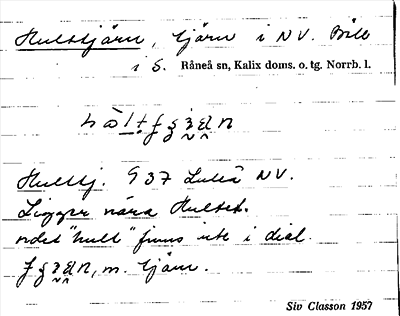 Hulttjärn, tjärn i NV. Böle
i S. Råneå sn, Kalix doms. o. tg. Norrb. l.
Hulttj. 937 Luleå NV.
Ligger nära Hultet.
ordet "hult" finns inte i dial.
m. tjärn.
Siv Classon 1957